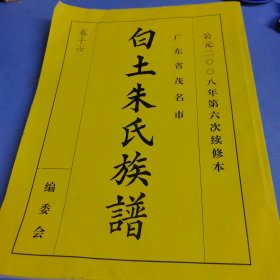 公元二〇〇八年第六次续修本
广东省茂名市
白土朱氏族譜
编委会
卷十六